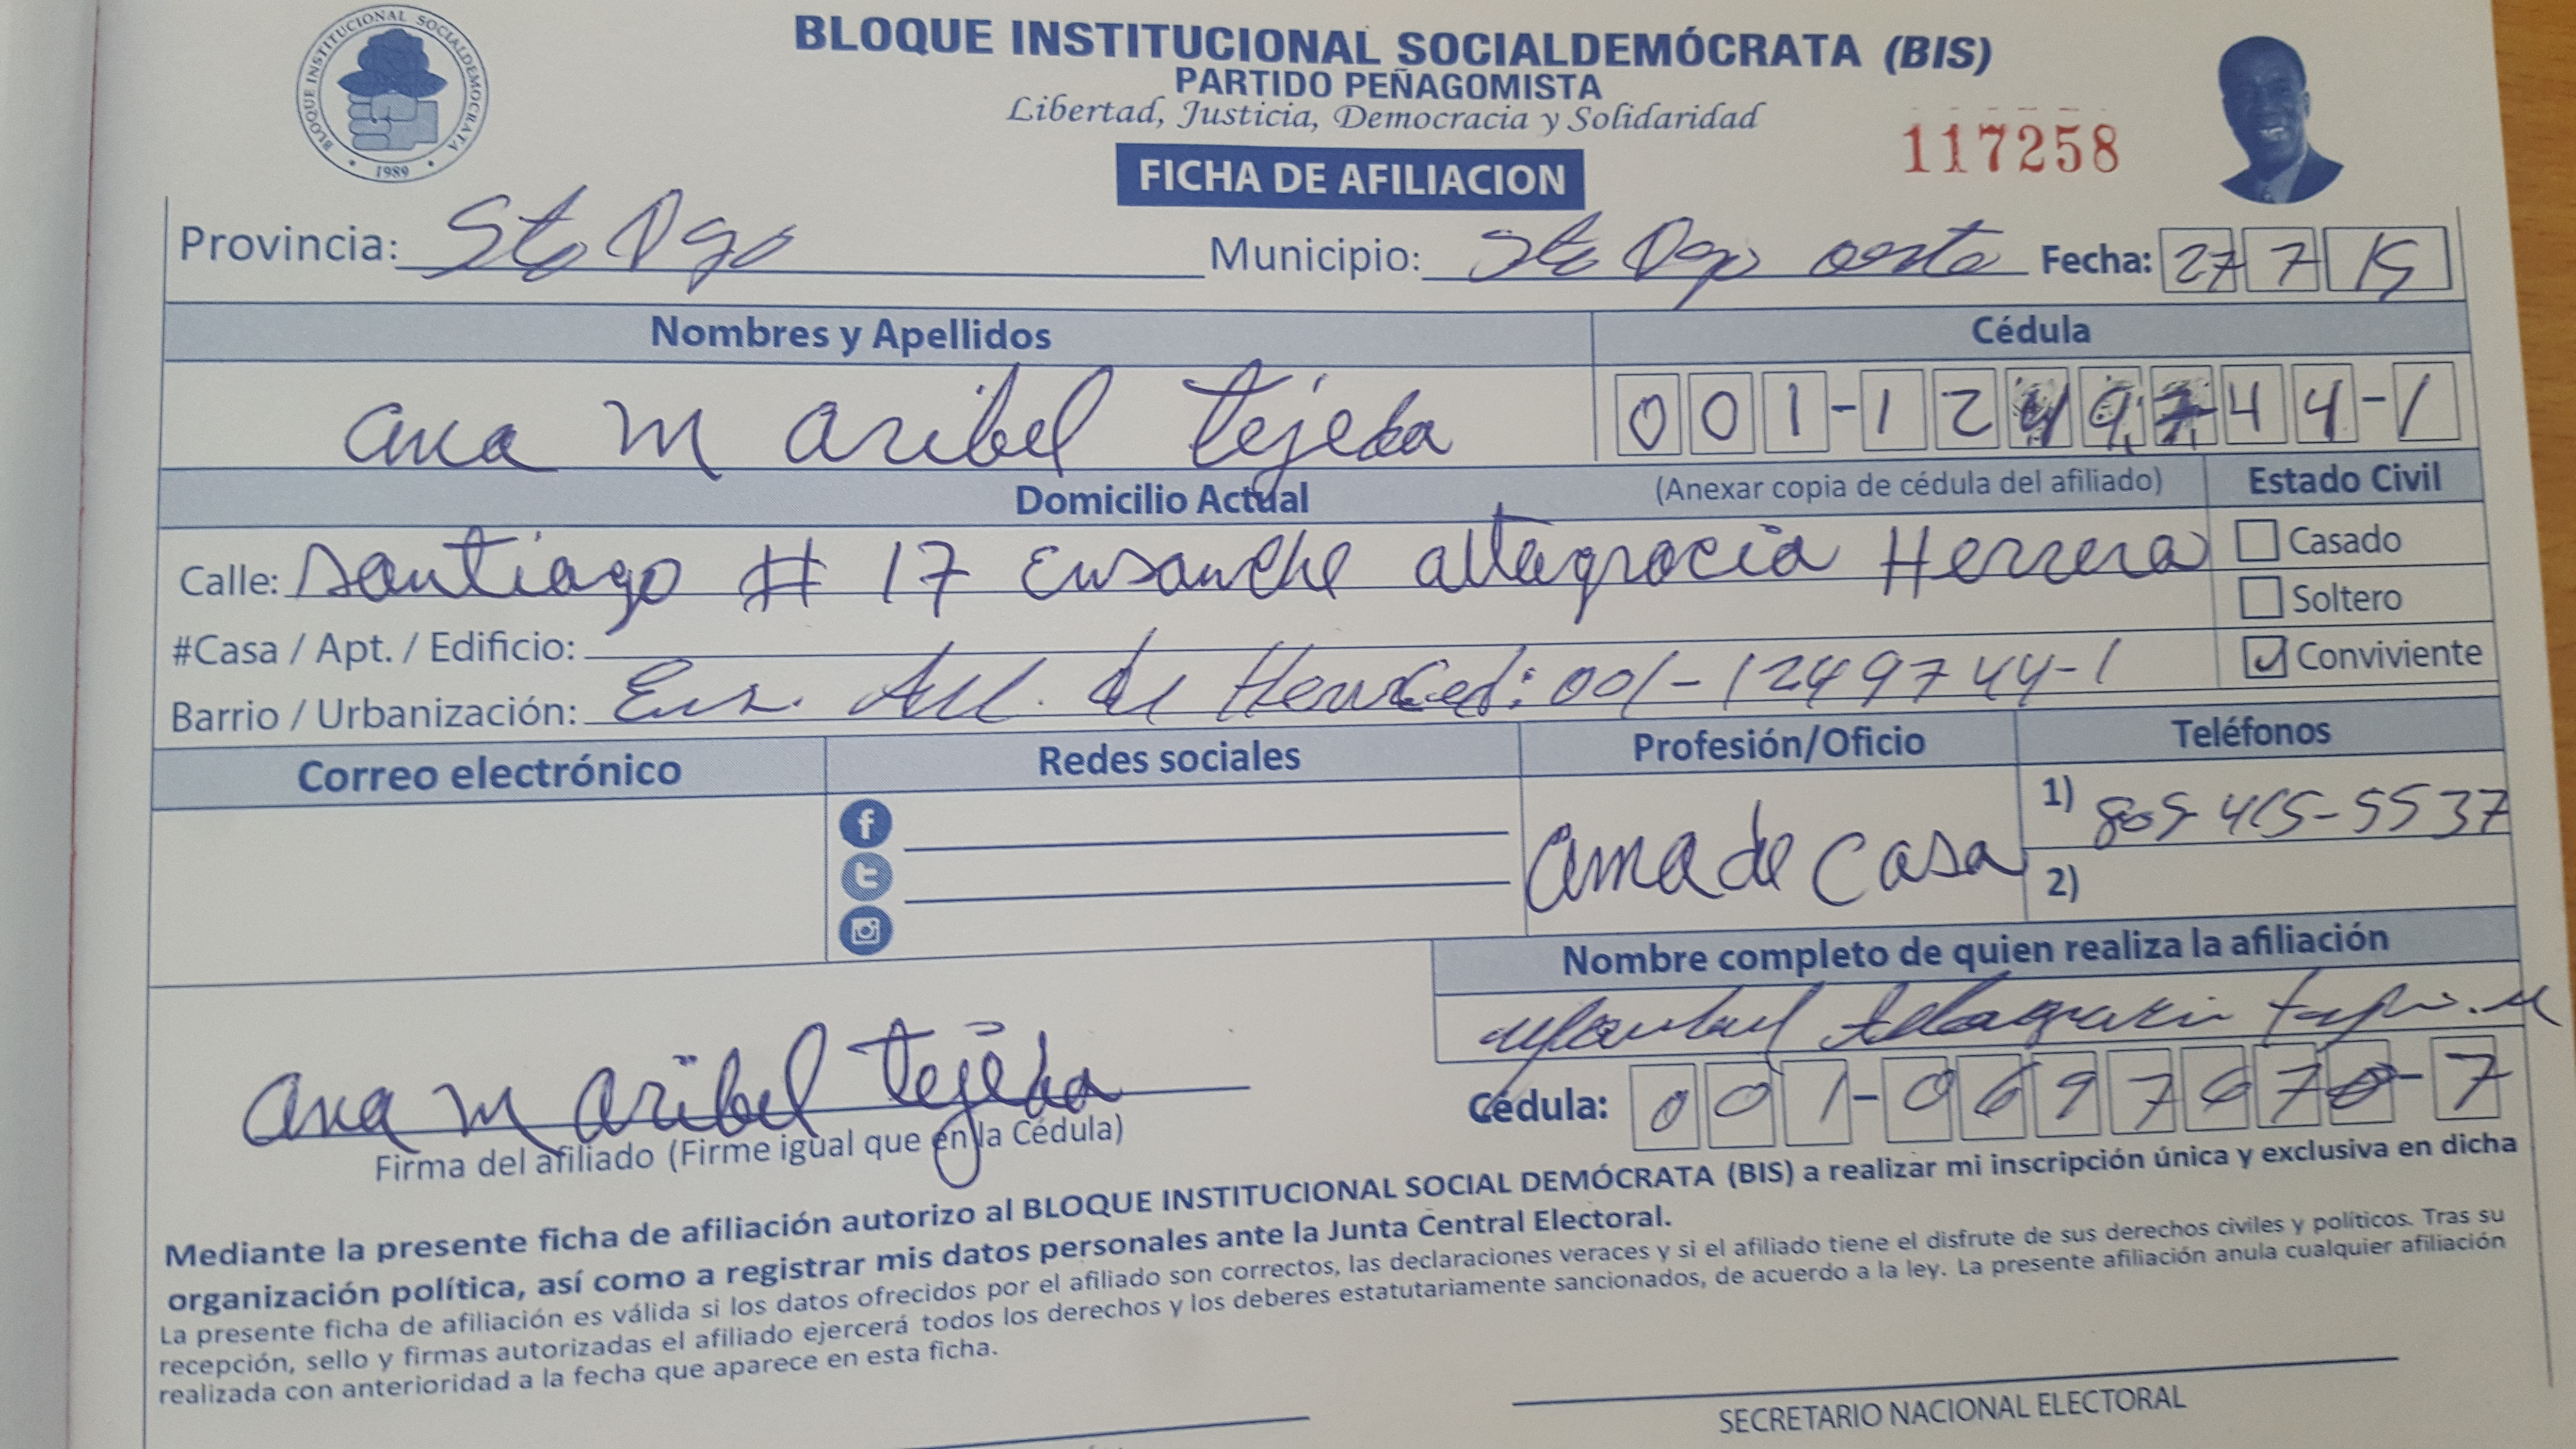 BLOQUE INSTITUCIONAL SOCIALDEMOCRATA
1989
BLOQUE INSTITUCIONAL SOCIALDEMÓCRATA (BIS)
PARTIDO PEÑAGOMISTA
Libertad, Justicia, Democracia y Solidaridad
117258
FICHA DE AFILIACION
Provincia: Sto Dgo Municipio: Sto Dgo oeste Fecha: 27 7 15
Nombres y Apellidos Cédula
ana m aribel tejeda 001-1249744-1
Domicilio Actual (Anexar copia de cédula del afiliado) Estado Civil
Calle: Santiago # 17 Ensanche altagracia Herrera Casado
Soltero
#Casa / Apt. / Edificio: Conviviente
Barrio / Urbanización: Ens. Alt. de Ced: 001-1249744-1
Correo electrónico Redes sociales Profesión/Oficio Teléfonos
ama de casa
1) 809-415-5537
2)
Nombre completo de quien realiza la afiliación
Altagracia
ana m aribel tejeda
Cédula: 001-0697670-7
Firma del afiliado (Firme igual que en la Cédula)
Mediante la presente ficha de afiliación autorizo al BLOQUE INSTITUCIONAL SOCIAL DEMÓCRATA (BIS) a realizar mi inscripción única y exclusiva en dicha
organización política, así como a registrar mis datos personales ante la Junta Central Electoral.
La presente ficha de afiliación es válida si los datos ofrecidos por el afiliado son correctos, las declaraciones veraces y si el afiliado tiene el disfrute de sus derechos civiles y políticos. Tras su
recepción, sello y firmas autorizadas el afiliado ejercerá todos los derechos y los deberes estatutariamente sancionados, de acuerdo a la ley. La presente afiliación anula cualquier afiliación
realizada con anterioridad a la fecha que aparece en esta ficha.
SECRETARIO NACIONAL ELECTORAL